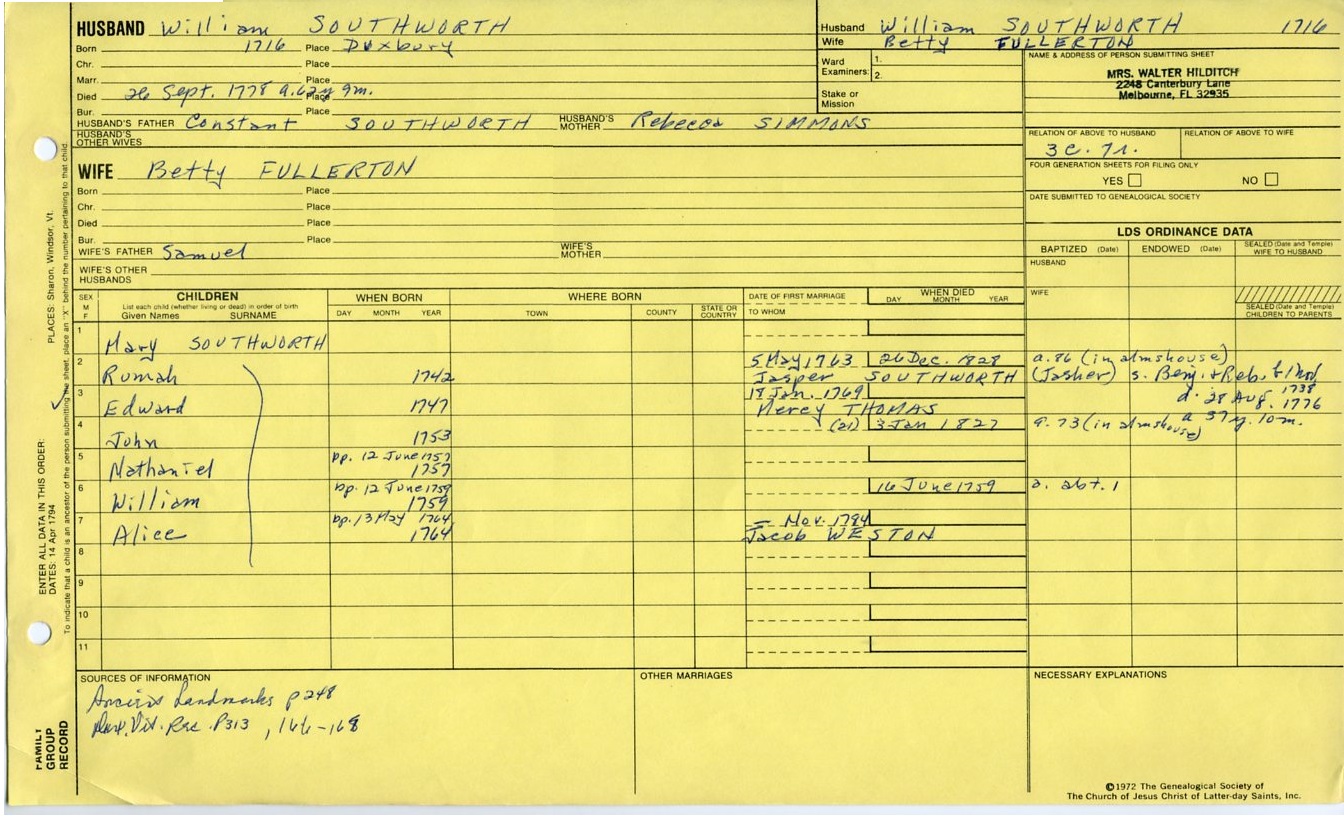 HUSBAND William SOUTHWORTH
Born 1716 Place Duxbury
Chr. Place
Marr. Place
Died 26 Sept. 1778 a. 62y 9m. Place
Bur. Place
HUSBAND'S FATHER Constant SOUTHWORTH HUSBAND'S MOTHER Rebecca SIMMONS
HUSBAND'S OTHER WIVES
WIFE Betty FULLERTON
Born Place
Chr. Place
Died Place
Bur. Place
WIFE'S FATHER Samuel WIFE'S MOTHER
WIFE'S OTHER HUSBANDS
Husband William SOUTHWORTH 1716
Wife Betty FULLERTON
Ward Examiners: 1.
2.
Stake or Mission
NAME & ADDRESS OF PERSON SUBMITTING SHEET
MRS. WALTER HILDITCH
2248 Canterbury Lane
Melbourne, FL 32935
RELATION OF ABOVE TO HUSBAND RELATION OF ABOVE TO WIFE
3c.7r.
FOUR GENERATION SHEETS FOR FILING ONLY
YES NO
DATE SUBMITTED TO GENEALOGICAL SOCIETY
LDS ORDINANCE DATA
BAPTIZED (Date) ENDOWED (Date) SEALED (Date and Temple) WIFE TO HUSBAND
HUSBAND
WIFE
SEALED (Date and Temple) CHILDREN TO PARENTS
SEX M F CHILDREN WHEN BORN WHERE BORN DATE OF FIRST MARRIAGE WHEN DIED
List each child (whether living or dead) in order of birth
Given Names SURNAME DAY MONTH YEAR TOWN COUNTY STATE OR COUNTRY TO WHOM DAY MONTH YEAR
1 Mary SOUTHWORTH
2 5 May 1763 26 Dec. 1828 a. 86 (in almshouse)
Rumah 1742 Jasper SOUTHWORTH (Jasher) s. Benj. + Reb. b. 1738
3 18 Jan. 1769 d. 28 Aug. 1776
Edward 1747 Mercy THOMAS a 37y. 10m.
4 (21) 3 Jan 1827 a. 73 (in almshouse)
John 1753
5 bp. 12 June 1757
Nathaniel 1757
6 bp. 12 June 1759 16 June 1759 a. abt. 1
William 1759
7 bp. 13 May 1764 — Nov. 1784
Alice 1764 Jacob WESTON
8
9
10
11
SOURCES OF INFORMATION
Landmarks p 248
Dux. Vit. Rec. P313, 166-168
OTHER MARRIAGES
NECESSARY EXPLANATIONS
©1972 The Genealogical Society of
The Church of Jesus Christ of Latter-day Saints, Inc.
PLACES: Sharon, Windsor, Vt.
ENTER ALL DATA IN THIS ORDER:
DATES: 14 Apr 1794
To indicate that a child is an ancestor of the person submitting the sheet, place an "X" behind the number pertaining to that child.
FAMILY
GROUP
RECORD